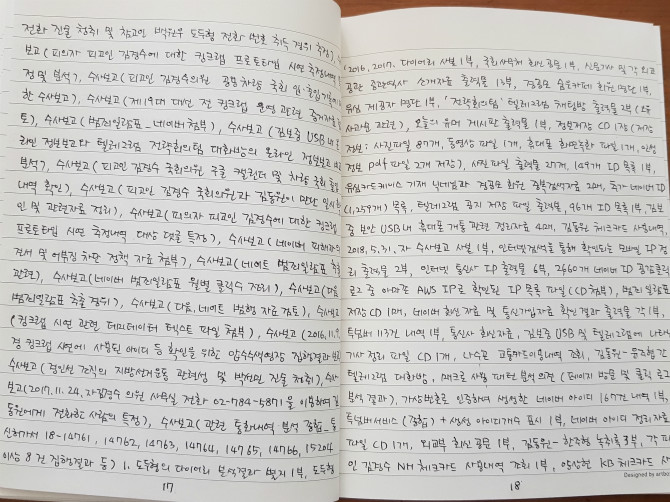 전화 진술 청취 및 참고인 박원우 도두형 전화 번호 취득 경위 추정),
보고(피의자 피고인 김경수에 대한 킹크랩 프로토타입 시연
정 및 분석), 수사보고(피고인 김경수의원 공용차량 국회 입·출입
한 수사보고), 수사보고(제19대 대선 전 킹크랩 운영 관련
토), 수사보고(범죄일람표_네이버 첨부), 수사보고(김보중 USB 내
라인 정보보고와 텔레그램 전략회의팀 대화방의 온라인 정보보고
분석), 수사보고(피고인 김경수 국회의원 구글 캘린더 및 차량 국회 출입
내역 확인), 수사보고(피고인 김경수 국회의원과 김동원이 만난 일시
인 및 관련자료 정리), 수사보고(피의자 피고인 김경수에 대한 킹크랩
프로토타입 시연 측정내역 대상 댓글 특정), 수사보고(네이버 피해자
견서 및 어뷰징 차단 정책 자료 첨부), 수사보고(네이트 범죄일람표
관련), 수사보고(네이버 범죄일람표 월별 클릭수 정리), 수사보고(다음
범죄일람표 추출 결과), 수사보고(다음, 네이트 범행 자료 검토), 수사보고
(킹크랩 시연 관련 더미데이터 텍스트 파일 첨부), 수사보고(2016.11.9.
경 킹크랩 시연에 사용된 아이디 등 확인을 위한 압수수색영장 집행결과
수사보고(경인선 조직의 지방선거운동 관련성 및 박선민 진술 청취), 수사
보고(2017.11.24.자 김경수 의원 사무실 전화 02-784-5871을 이용하여 김
동원에게 전화한 사람의 특정), 수사보고(관련 통화내역 분석 종합-통
신허가서 18-14761, 14762, 14763, 14764, 14765, 14766, 15204
이상 8건 집행결과 등) 1, 도두형의 다이어리 분석결과 별지 1부, 도두형
17
2016, 2017. 다이어리 사본 1부, 국회사무처 회신 공문 1부, 신문기사 및 각 외교
공관 총영사 소개자료 출력물 13부, 경공모 숨은카페 회원 명단 1부,
유심 제공자 명단 1부, '전략회의팀' 텔레그램 채팅방 출력물 2부(오
사카 관련), 오늘의 유머 게시판 출력물 1부, 정보저장 CD 1장(저장
정보: 사진파일 87개, 동영상 파일 1개, 휴대폰 화면녹화 파일 1개, 인
정보 pdf 파일 2개 저장), 사진 파일 출력물 27개, 149개 ID 목록 1부,
유심카드케이스 기재 닉네임과 경공모 회원 전북 자료 20매, 추가 네이버 ID
(1,259개) 목록, 텔레그램 공지 저장 파일 출력물, 96개 ID 목록 1부, 김보
중 보안 USB내 휴대폰 개통 관련 정리자료 4매, 김동원 체크카드 사용내역,
2018.5.31.자 수사보고 사본 1부, 인터넷검색을 통해 확인되는 모바일 IP 정
리 출력물 2부, 인터넷 통신사 IP 출력물 6부, 2,660개 네이버 ID 공감클릭
로그 중 아마존 AWS IP로 확인된 IP 목록 파일(CD첨부), 범죄일람표
저장 CD 1매, 네이버 회신자료 및 통신가입자료 확인결과 출력물 각 1부,
튜닝버 113건 내역 1부, 통신사 회신자료, 김보중 USB 및 텔레그램에 나타난
기사 정리 파일 CD 1개, 나수곤 교통카드이용내역 조회, 김동원-윤평
텔레그램 대화방, 매크로 사용 패턴 분석의견(페이지 방문 및 클릭 로그
분석 결과), 가상번호로 인증하여 생성한 네이버 아이디 167건 내역 1부,
튜닝버서비스(경향) + 생성 아이디개수 표시 1부, 네이버 아이디 정리자료
파일 CD 1개, 외교부 회신 공문 1부, 김동원-한주형 녹취록 3부, 각 피
인 김경수 NH 체크카드 사용내역 조회 1부, 양상현 KB 체크카드 사
18
Designed by